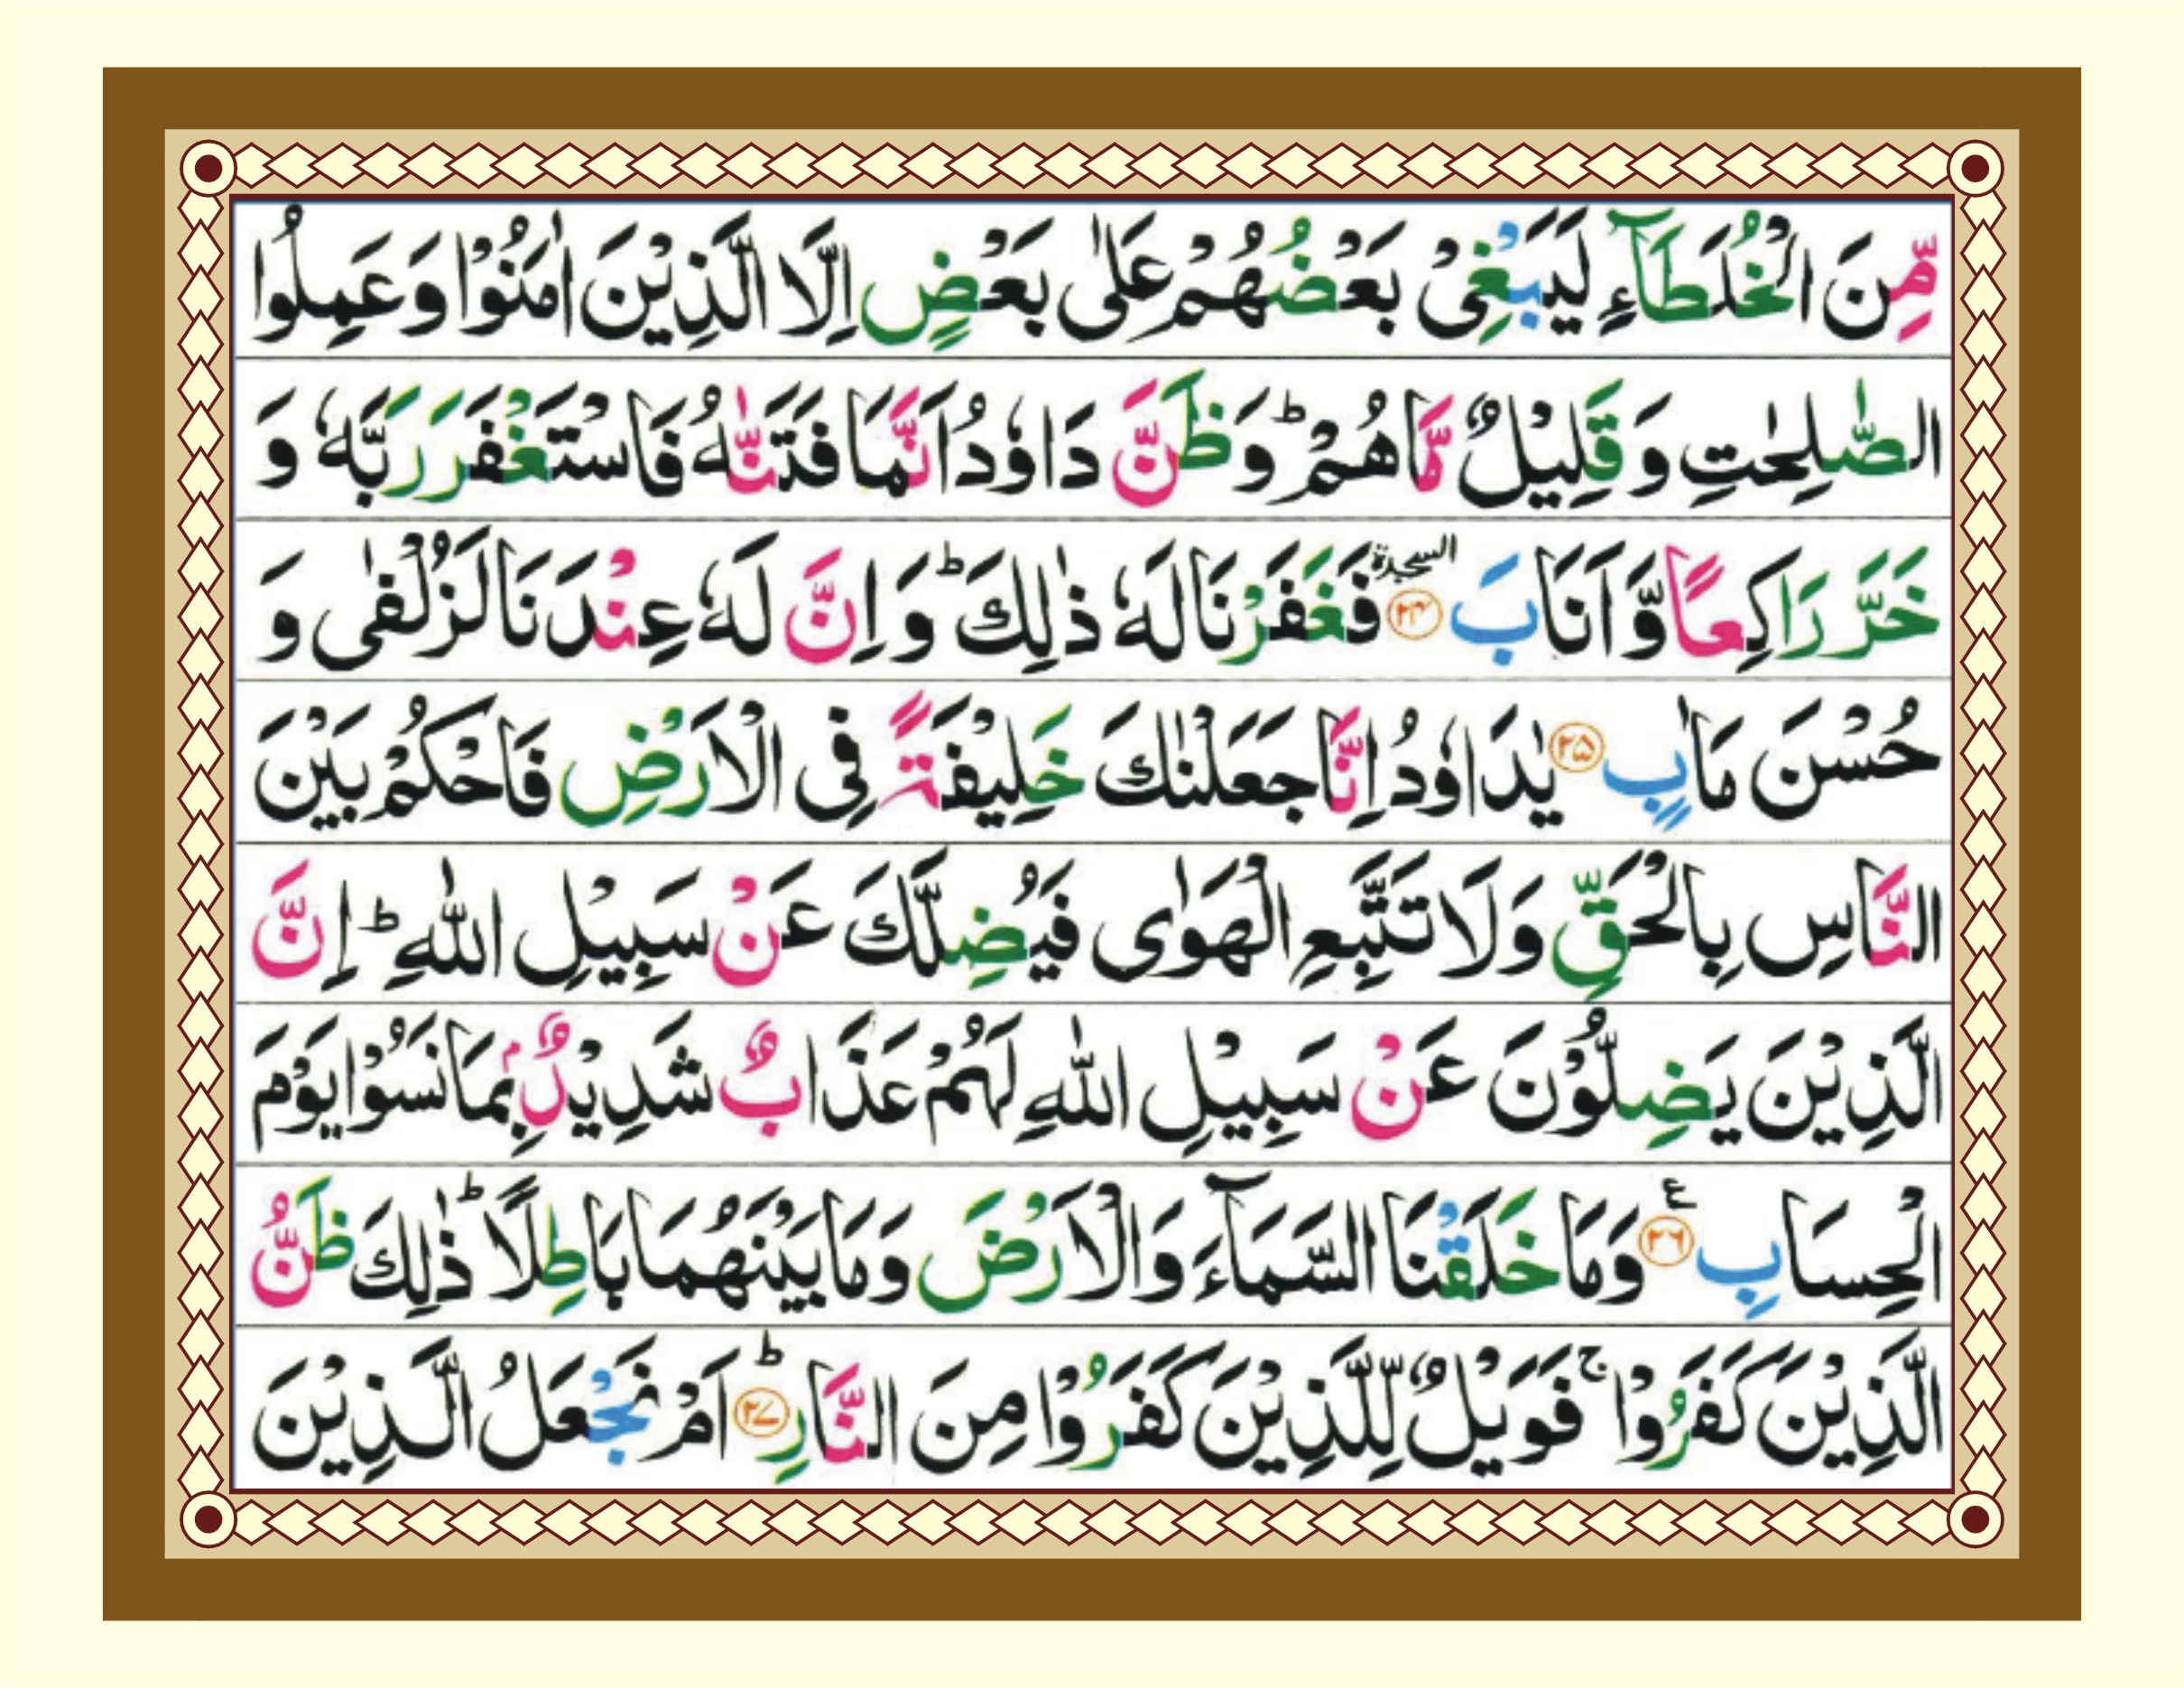 مِّنَ الْخُلَطَآءِ لَیَبْغِیْ بَعْضُهُمْ عَلٰی بَعْضٍ اِلَّا الَّذِیْنَ اٰمَنُوْا وَ عَمِلُوا
الصّٰلِحٰتِ وَ قَلِیْلٌ مَّا هُمْ ؕ وَ ظَنَّ دَاوٗدُ اَنَّمَا فَتَنّٰهُ فَاسْتَغْفَرَ رَبَّهٗ وَ
خَرَّ رَاكِعًا وَّ اَنَابَ السجدة ۲۴ فَغَفَرْنَا لَهٗ ذٰلِكَ ؕ وَ اِنَّ لَهٗ عِنْدَنَا لَزُلْفٰی وَ
حُسْنَ مَاٰبٍ ۲۵ یٰدَاوٗدُ اِنَّا جَعَلْنٰكَ خَلِیْفَةً فِی الْاَرْضِ فَاحْكُمْ بَیْنَ
النَّاسِ بِالْحَقِّ وَ لَا تَتَّبِعِ الْهَوٰی فَیُضِلَّكَ عَنْ سَبِیْلِ اللّٰهِ ؕ اِنَّ
الَّذِیْنَ یَضِلُّوْنَ عَنْ سَبِیْلِ اللّٰهِ لَهُمْ عَذَابٌ شَدِیْدٌۢ بِمَا نَسُوْا یَوْمَ
الْحِسَابِ ۲۶ ع وَ مَا خَلَقْنَا السَّمَآءَ وَ الْاَرْضَ وَ مَا بَیْنَهُمَا بَاطِلًا ؕ ذٰلِكَ ظَنُّ
الَّذِیْنَ كَفَرُوْا ۚ فَوَیْلٌ لِّلَّذِیْنَ كَفَرُوْا مِنَ النَّارِ ؕ ۲۷ اَمْ نَجْعَلُ الَّذِیْنَ